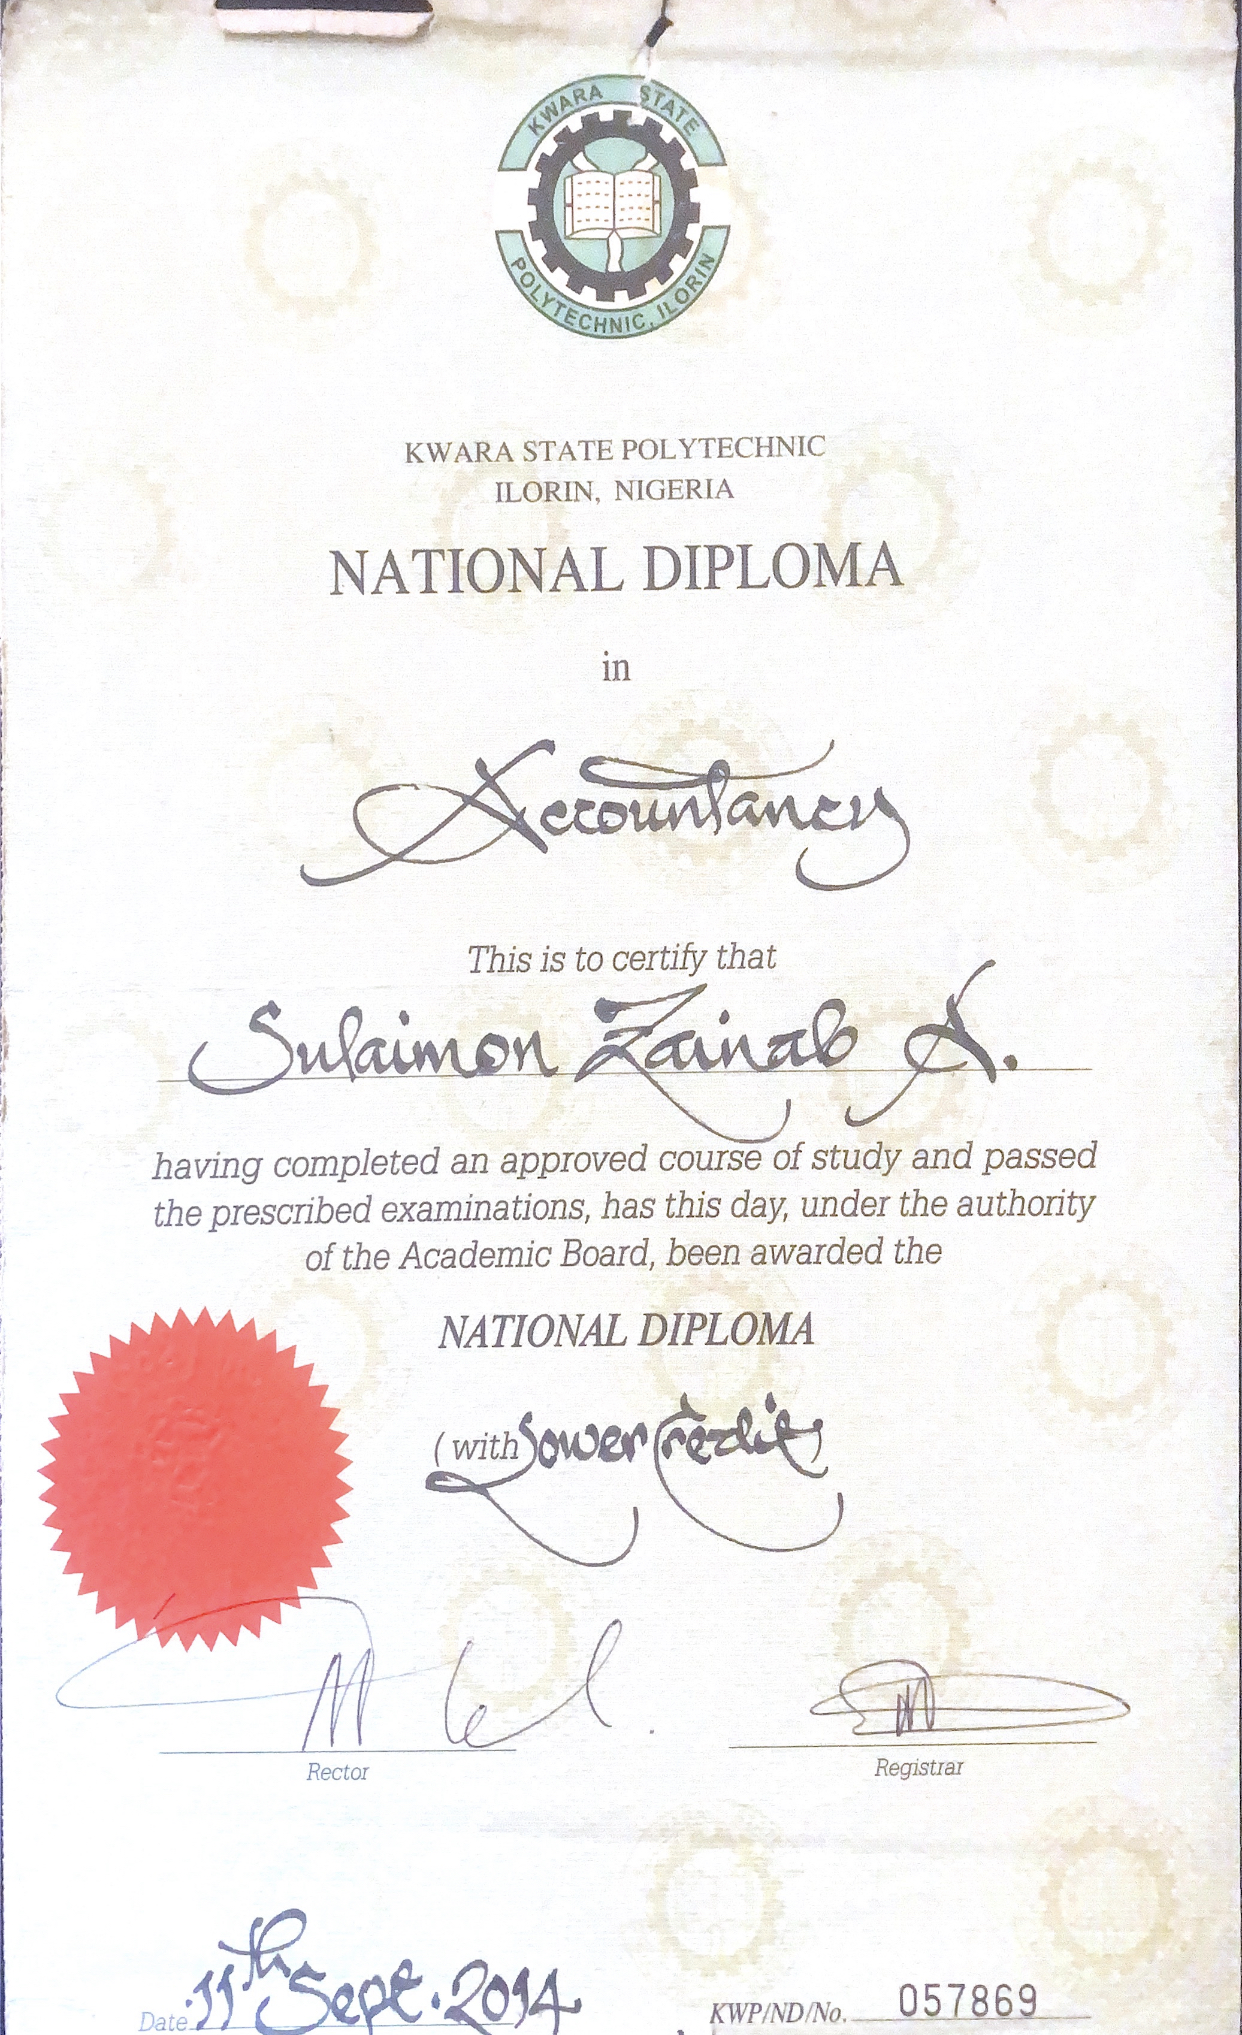 KWARA STATE
POLYTECHNIC, ILORIN
KWARA STATE POLYTECHNIC
ILORIN, NIGERIA
NATIONAL DIPLOMA
in
Accountancy
This is to certify that
Sulaimon Zainab A.
having completed an approved course of study and passed
the prescribed examinations, has this day, under the authority
of the Academic Board, been awarded the
NATIONAL DIPLOMA
(with Lower Credit)
Rector
Registrar
Date 11th Sept. 2014
KWP/ND/No. 057869